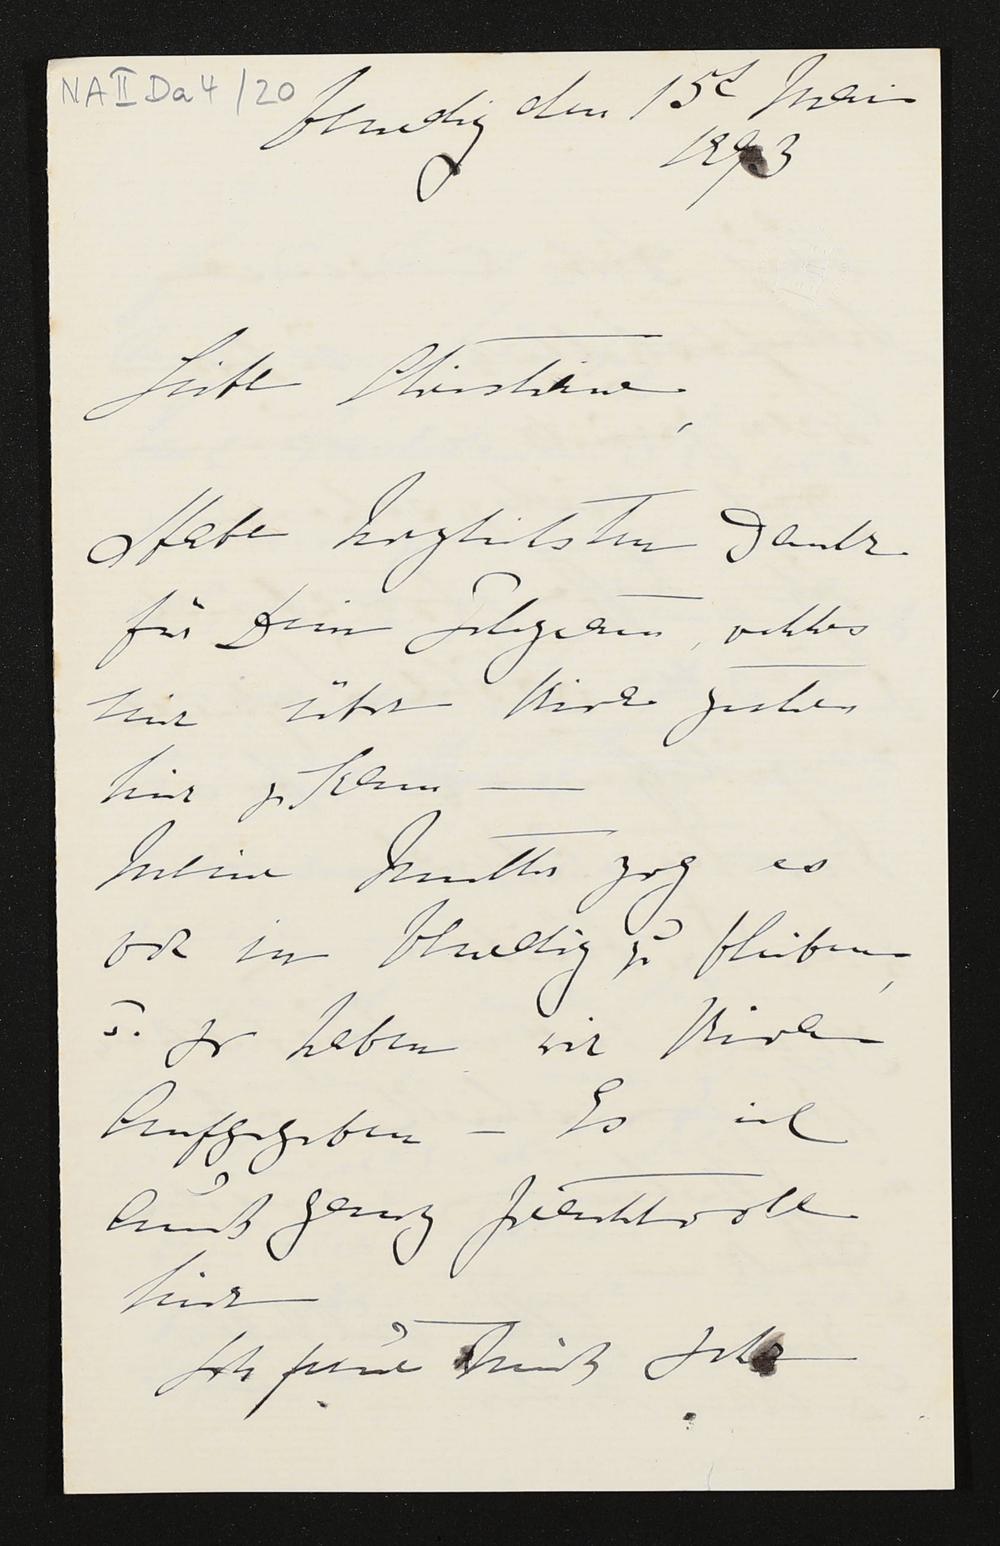 NA II Da 4 / 20
Venedig den 15t Mai
1893
Liebe Christiane,
Habe herzlichsten Dank
für Dein Telegram, welches
mir über Riva gestern
hier zukam —
Meine Mutter zog es
vor in Venedig zu bleiben,
u. so haben wir Riva
aufgegeben – Es ist
auch ganz prachtvoll
hier
Ich freue mich sehr